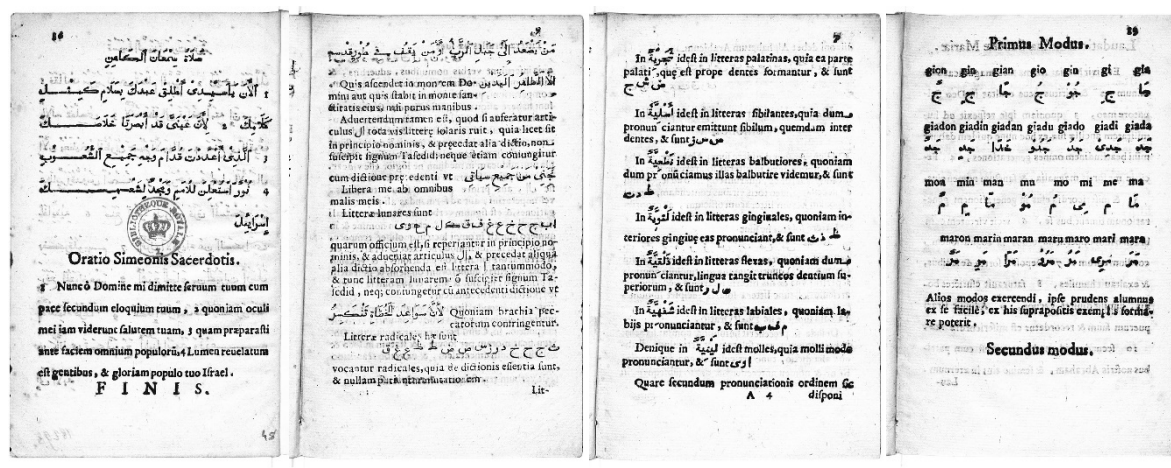 صلاة سمعان الكاهن
الآن يا سيدي أطلق عبدك بسلام كمثل
كلامك لأن عيني قد أبصرتا خلاصك
الذي أعددت قدام وجه جميع الشعوب
4 نور استعلن للأمم ومجد لشعبك
إسرائيل
BIBLIOTHEQUE ROYALE
Oratio Simeonis Sacerdotis.
Nunc ò Domine mi dimitte seruum tuum cum
pace secundum eloquium tuum, 2 quoniam oculi
mei iam viderunt salutem tuam, 3 quam præparasti
ante faciem omnium populorū, 4 Lumen reuelatum
est gentibus, & gloriam populo tuo Israel.
FINIS.
45
من يصعد إلى جبل الرب أو من يقف في طور قدسه
Quis ascendet in montem Do-
mini aut quis stabit in monte san-
ctitatis eius, mũ purus manibus.
Aduertendum tamen est, quod si auferatur arti-
culus ال tota vis litteræ solaris ruit, quia licet sit
in principio nominis, & præcedat alia dictio, non
suscipit signum Tasedid; neque etiam coniungitur
cum dictione præcedenti vt
Libera me ab omnibus
malis meis.
Litteræ lunares sunt
quarum officium est, si reperiantur in principio no-
minis, & adueniat articulus ال, & præcedat aliqua
alia dictio absorbenda est littera ا tantummodo,
& tunc litteram lunarem ō suscipiet signum Ta-
sedid, neq; coniungetur cū antecedenti dictione vt
لأن سواعد الخطاة تنكسر Quoniam brachia pec-
catorum contringentur.
Litteræ radicales hæ sunt
vocantur radicales, quia de dictionis essentia sunt,
& nullam patiuntur mutationem.
Lit-
7
In شجرية idest in litteras palatinas, quia ea parte
palati, quę est prope dentes formantur, & sunt
ض ش ج
In أسلية idest in litteras sibilantes, quia dum
pronunciantur emittunt sibilum, quemdam inter
dentes, & sunt ص س ز
In نطعية idest in litteras balbutiores, quoniam
dum pronũciamus illas balbutire videmur, & sunt
ط د ت
In لثوية idest in litteras gingiuales, quoniam in-
teriores gingiuę eas pronunciant, & sunt ظ ذ ث
In ذلقية idest in litteras flexas, quoniam dum
pronunciantur, lingua tangit truncos dentium su-
periorum, & sunt ن ل ر
In شفهية idest in litteras labiales, quoniam la-
bijs pronunciantur, & sunt م ف ب
Denique in لينية idest molles, quia molli modo
pronunciantur, & sunt ا و ى
Quare secundum pronunciationis ordinem sic
A 4 disponi
29
Primus Modus.
gion gin gian gio gin gi gia
giadon giadin giadan giadu giado giadi giada
mon min man mu mo mi me ma
maron marin maran maru maro mari mara
Alios modos exercendi, ipse prudens alumnus
ex se facilè, ex his suprapositis exemplis forma-
re poterit.
Secundus modus.